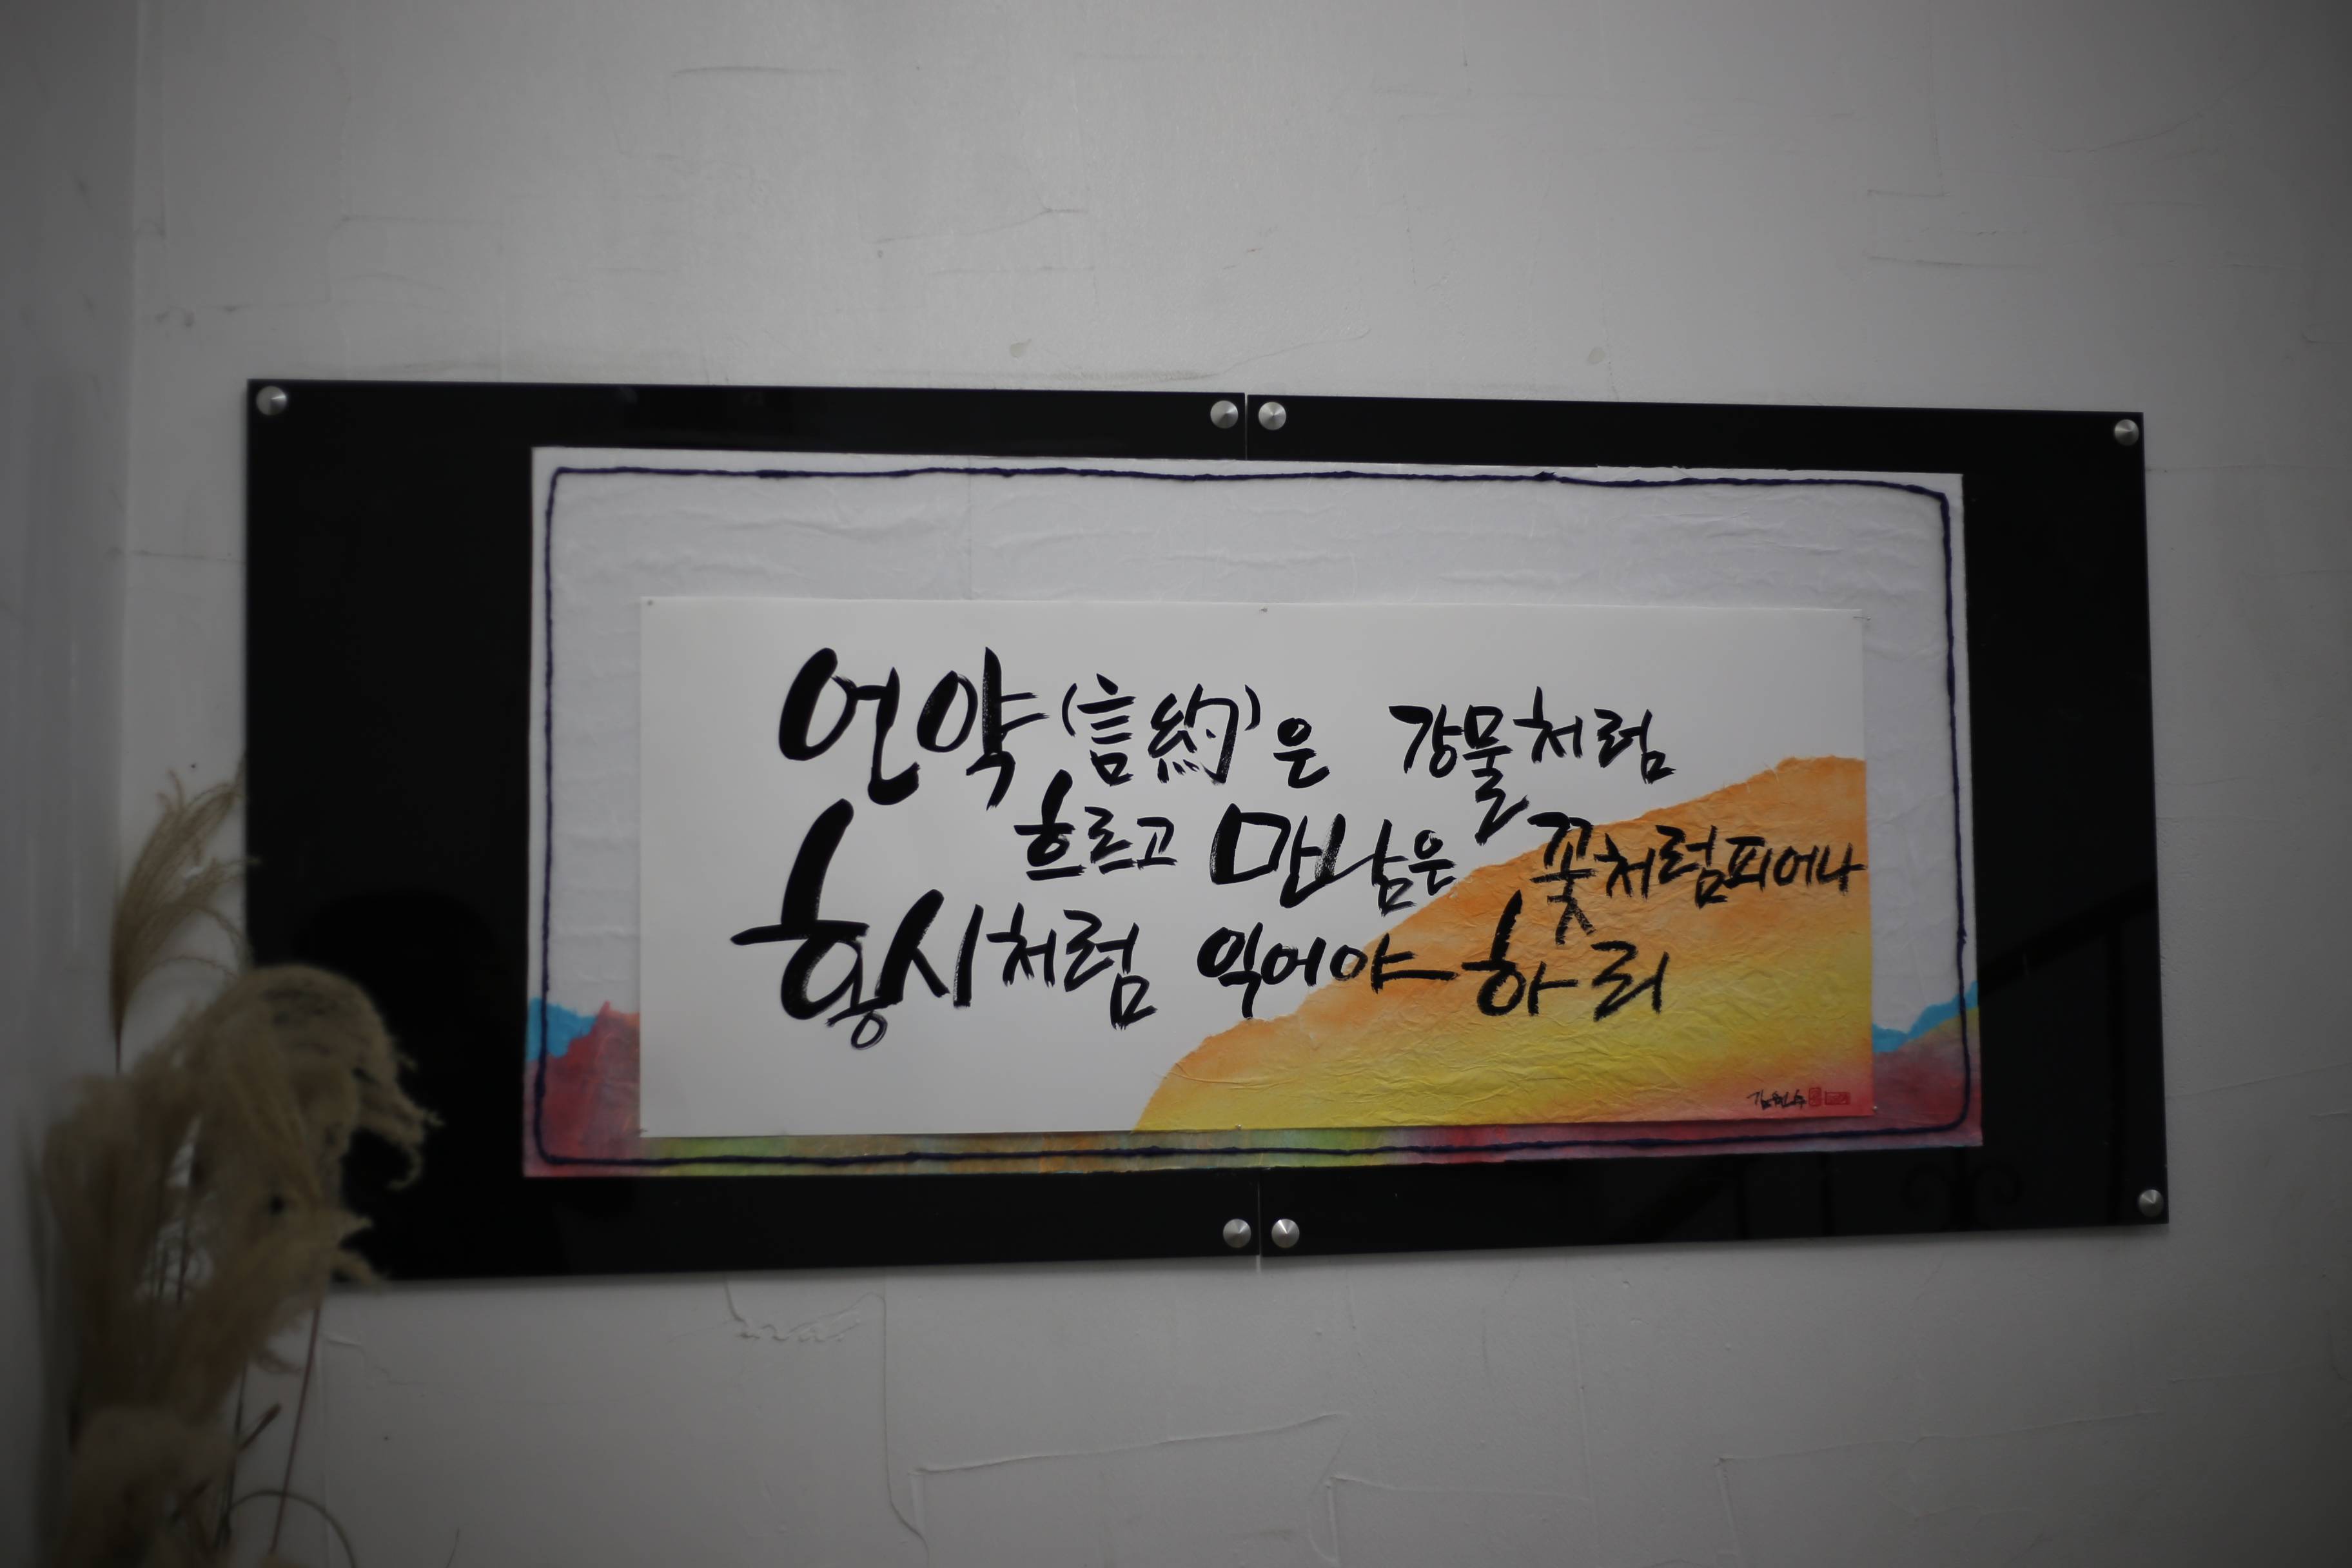 언약(言約)은 강물처럼
흐르고 만남은 꽃처럼피어나
홍시처럼 익어야 하리